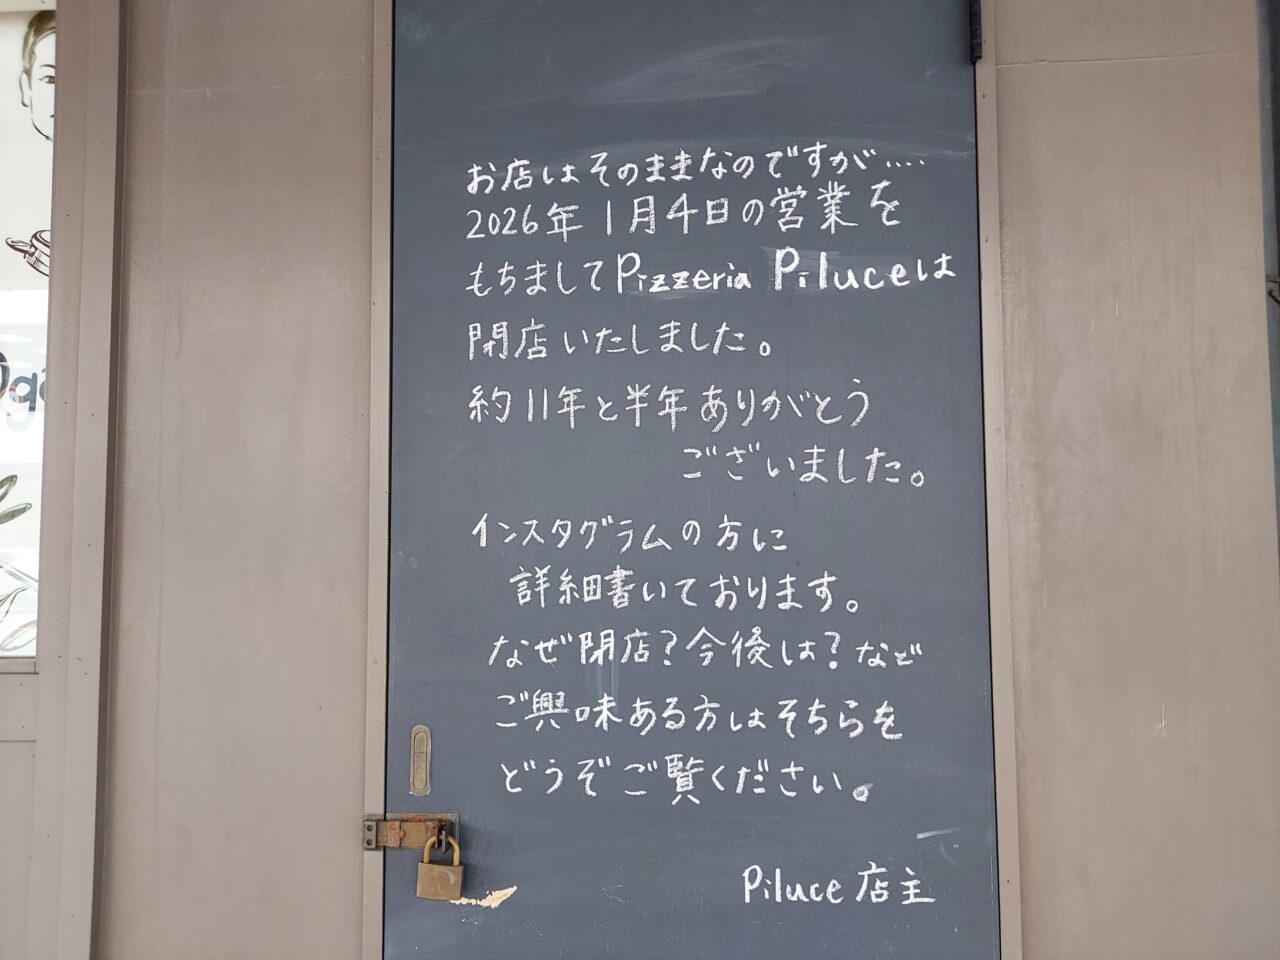 お店はそのままなのですが‥‥
2026年1月4日の営業を
もちまして Pizzeria Piluceは
閉店いたしました。
約11年と半年ありがとう
ございました。
インスタグラムの方に
詳細書いております。
なぜ閉店?今後は?など
ご興味ある方はそちらを
どうぞご覧ください。
Piluce 店主